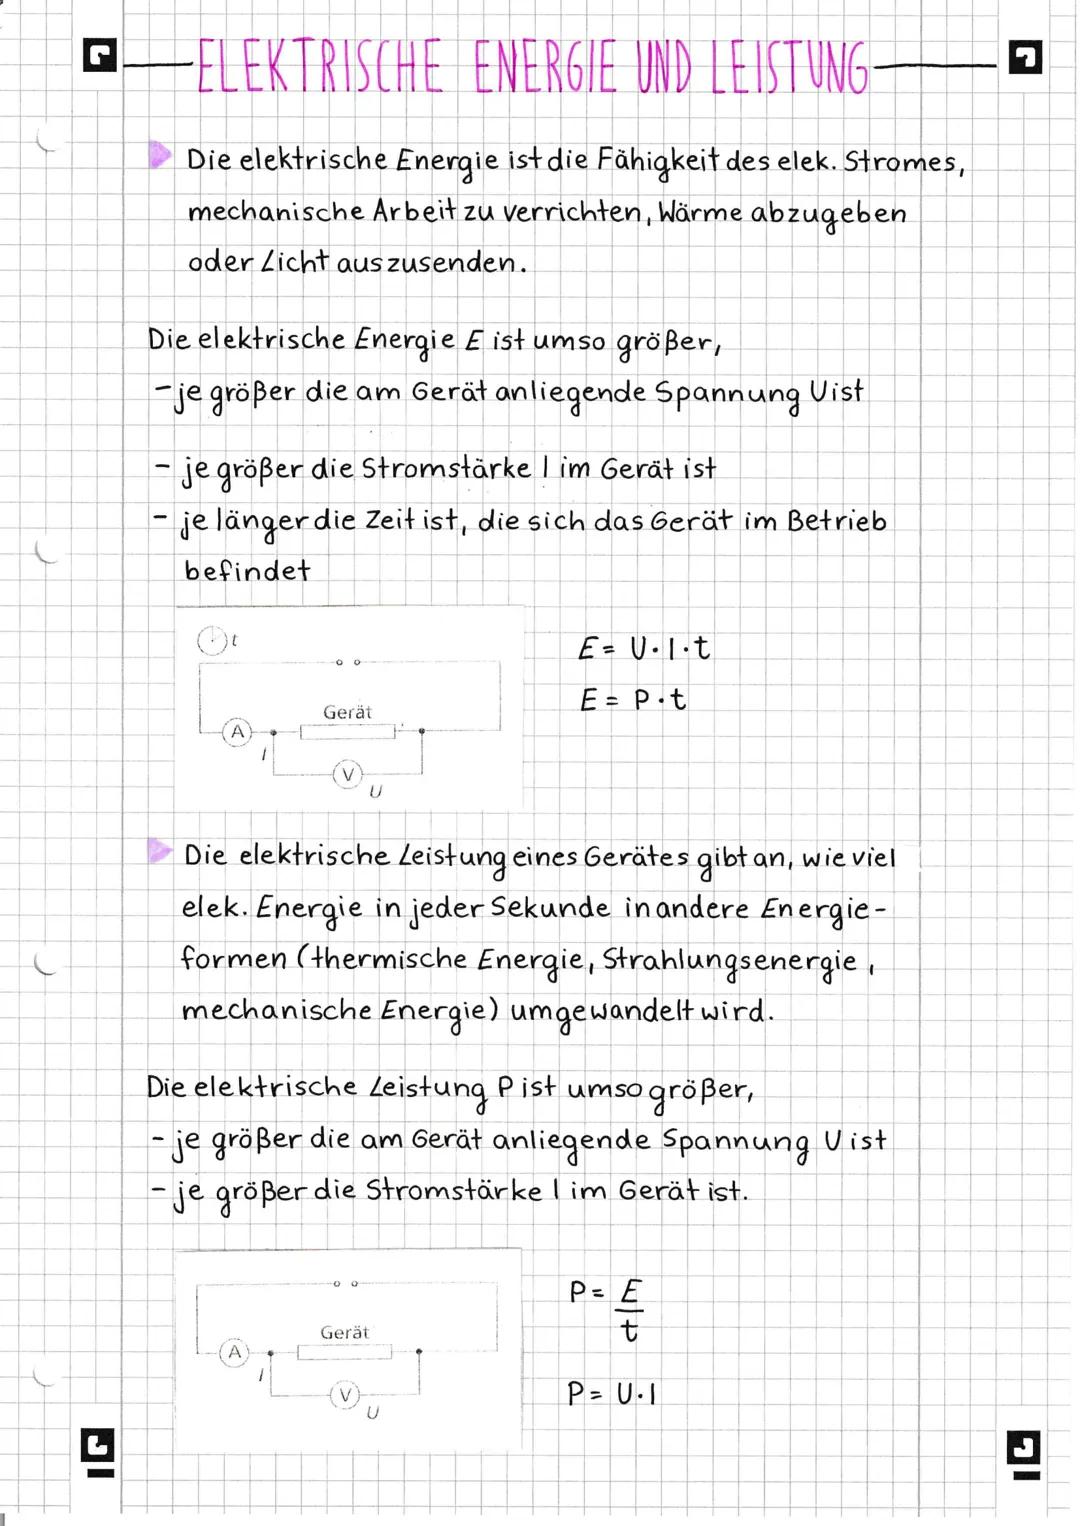 ELEKTRISCHE ENERGIE UND LEISTUNG
Die elektrische Energie ist die Fähigkeit des elek. Stromes,
mechanische Arbeit zu verrichten, Wärme abzugeben
oder Licht auszusenden.
Die elektrische Energie E ist umso größer,
- je größer die am Gerät anliegende Spannung U ist
- je größer die Stromstärke I im Gerät ist
- je länger die Zeit ist, die sich das Gerät im Betrieb
befindet
t
Gerät
A
I
V
U
E = U · I · t
E = P · t
Die elektrische Leistung eines Gerätes gibt an, wie viel
elek. Energie in jeder Sekunde in andere Energie-
formen (thermische Energie, Strahlungsenergie,
mechanische Energie) umgewandelt wird.
Die elektrische Leistung P ist umso größer,
- je größer die am Gerät anliegende Spannung U ist
- je größer die Stromstärke I im Gerät ist.
Gerät
A
I
V
U
P = E
t
P = U · I